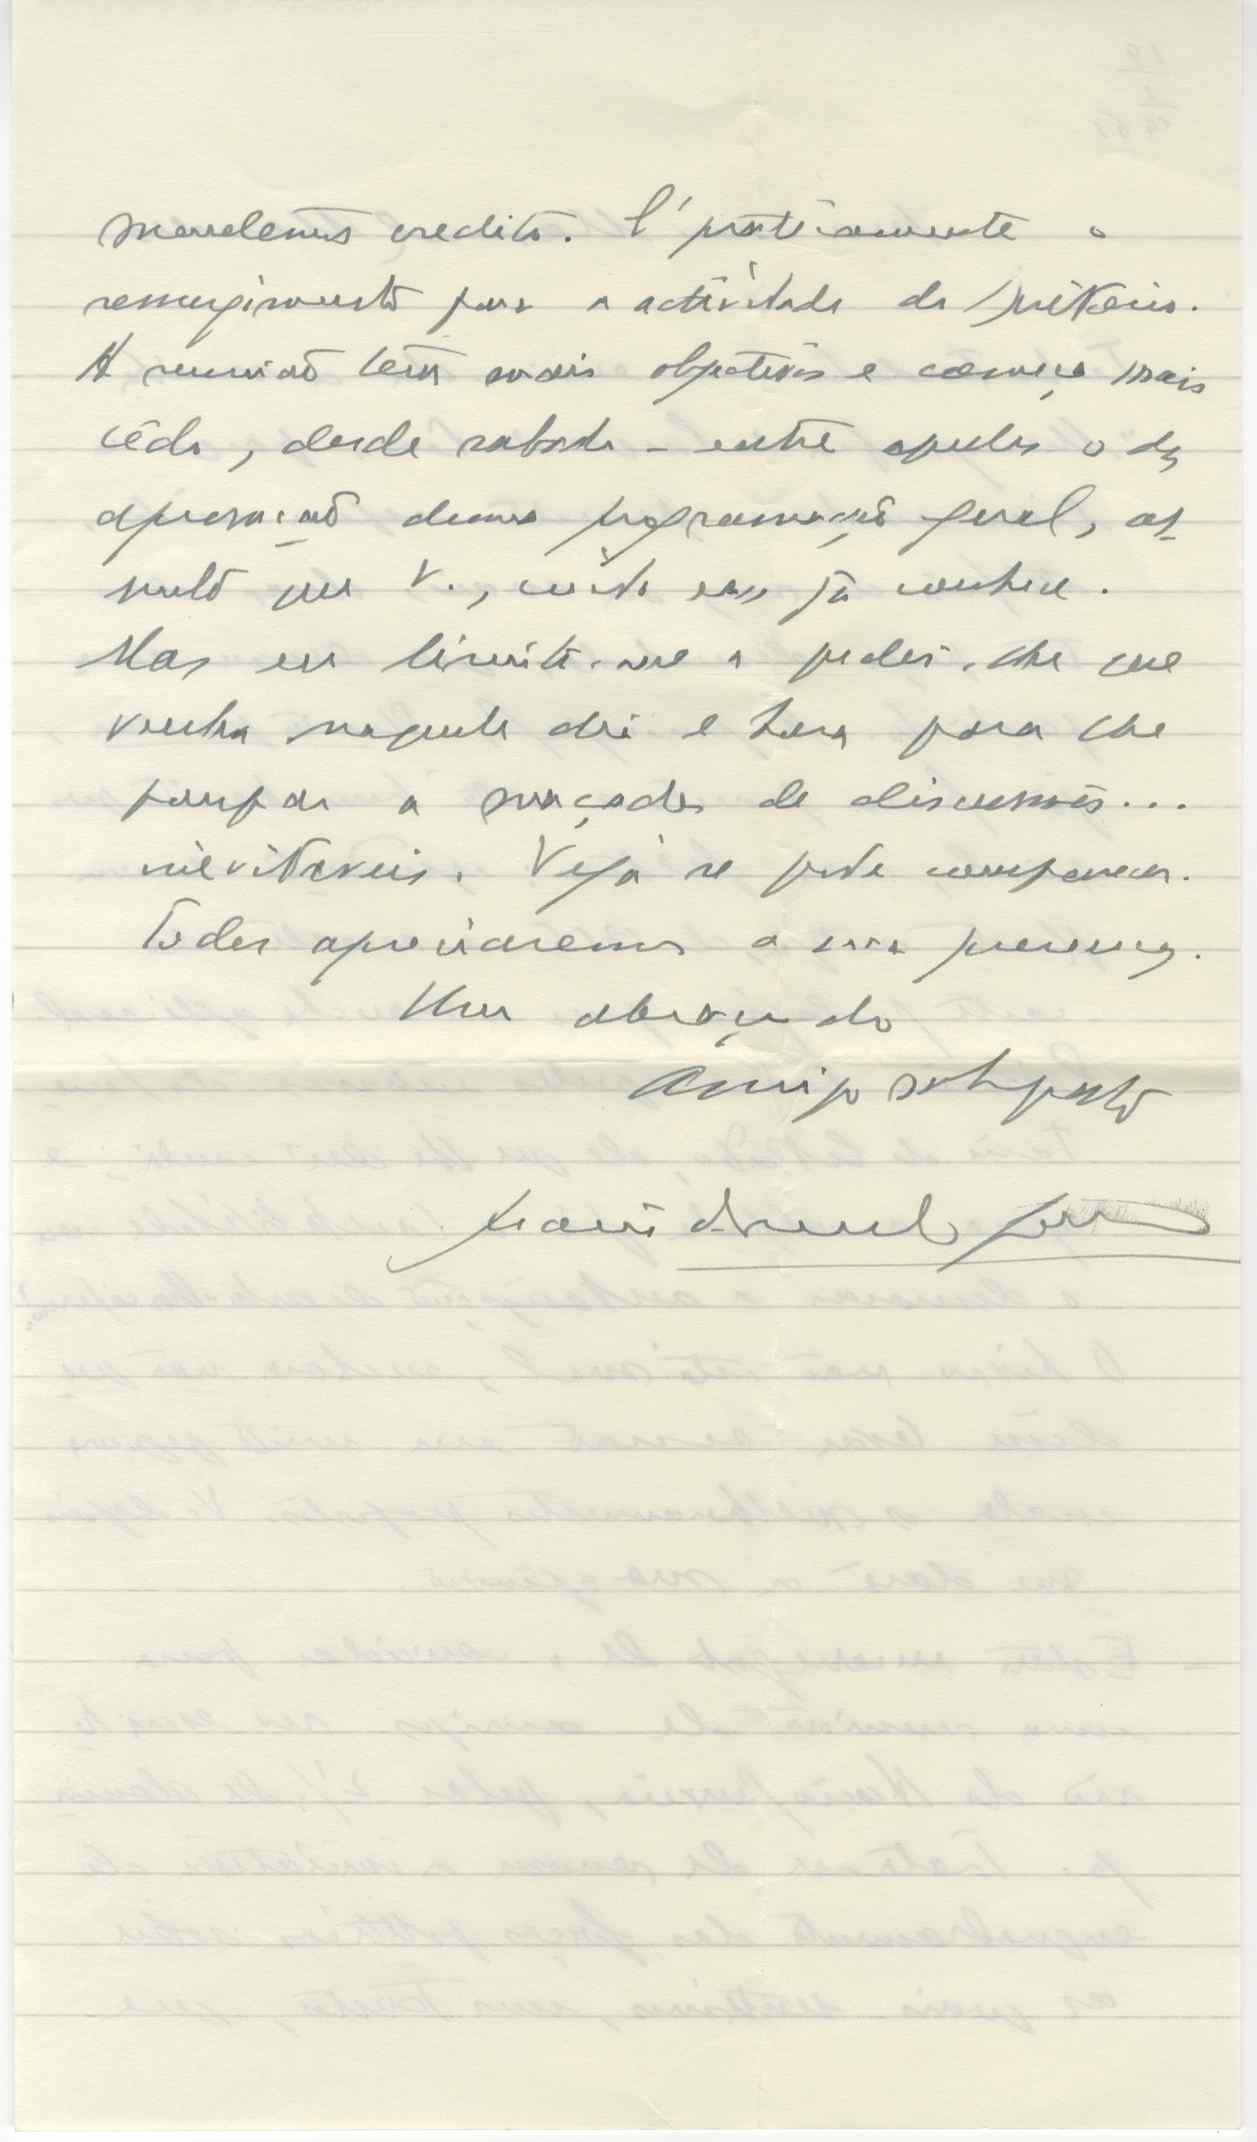 crédito. É praticamente o
ressurgimento para a actividade da
A reunião tem mais objectivos e começa mais
cêdo, desde sabado - entre aqueles o da
apreciação duma programação geral, as
sunto que V., creio eu, já conhece.
Mas eu limito-me a pedir-lhe que
venha naquele dia e hora para lhe
poupar a maçada de discussões...
inevitaveis. Veja se pode comparecer.
Todos apreciaremos a sua presença.
Um abraço do
Amigo